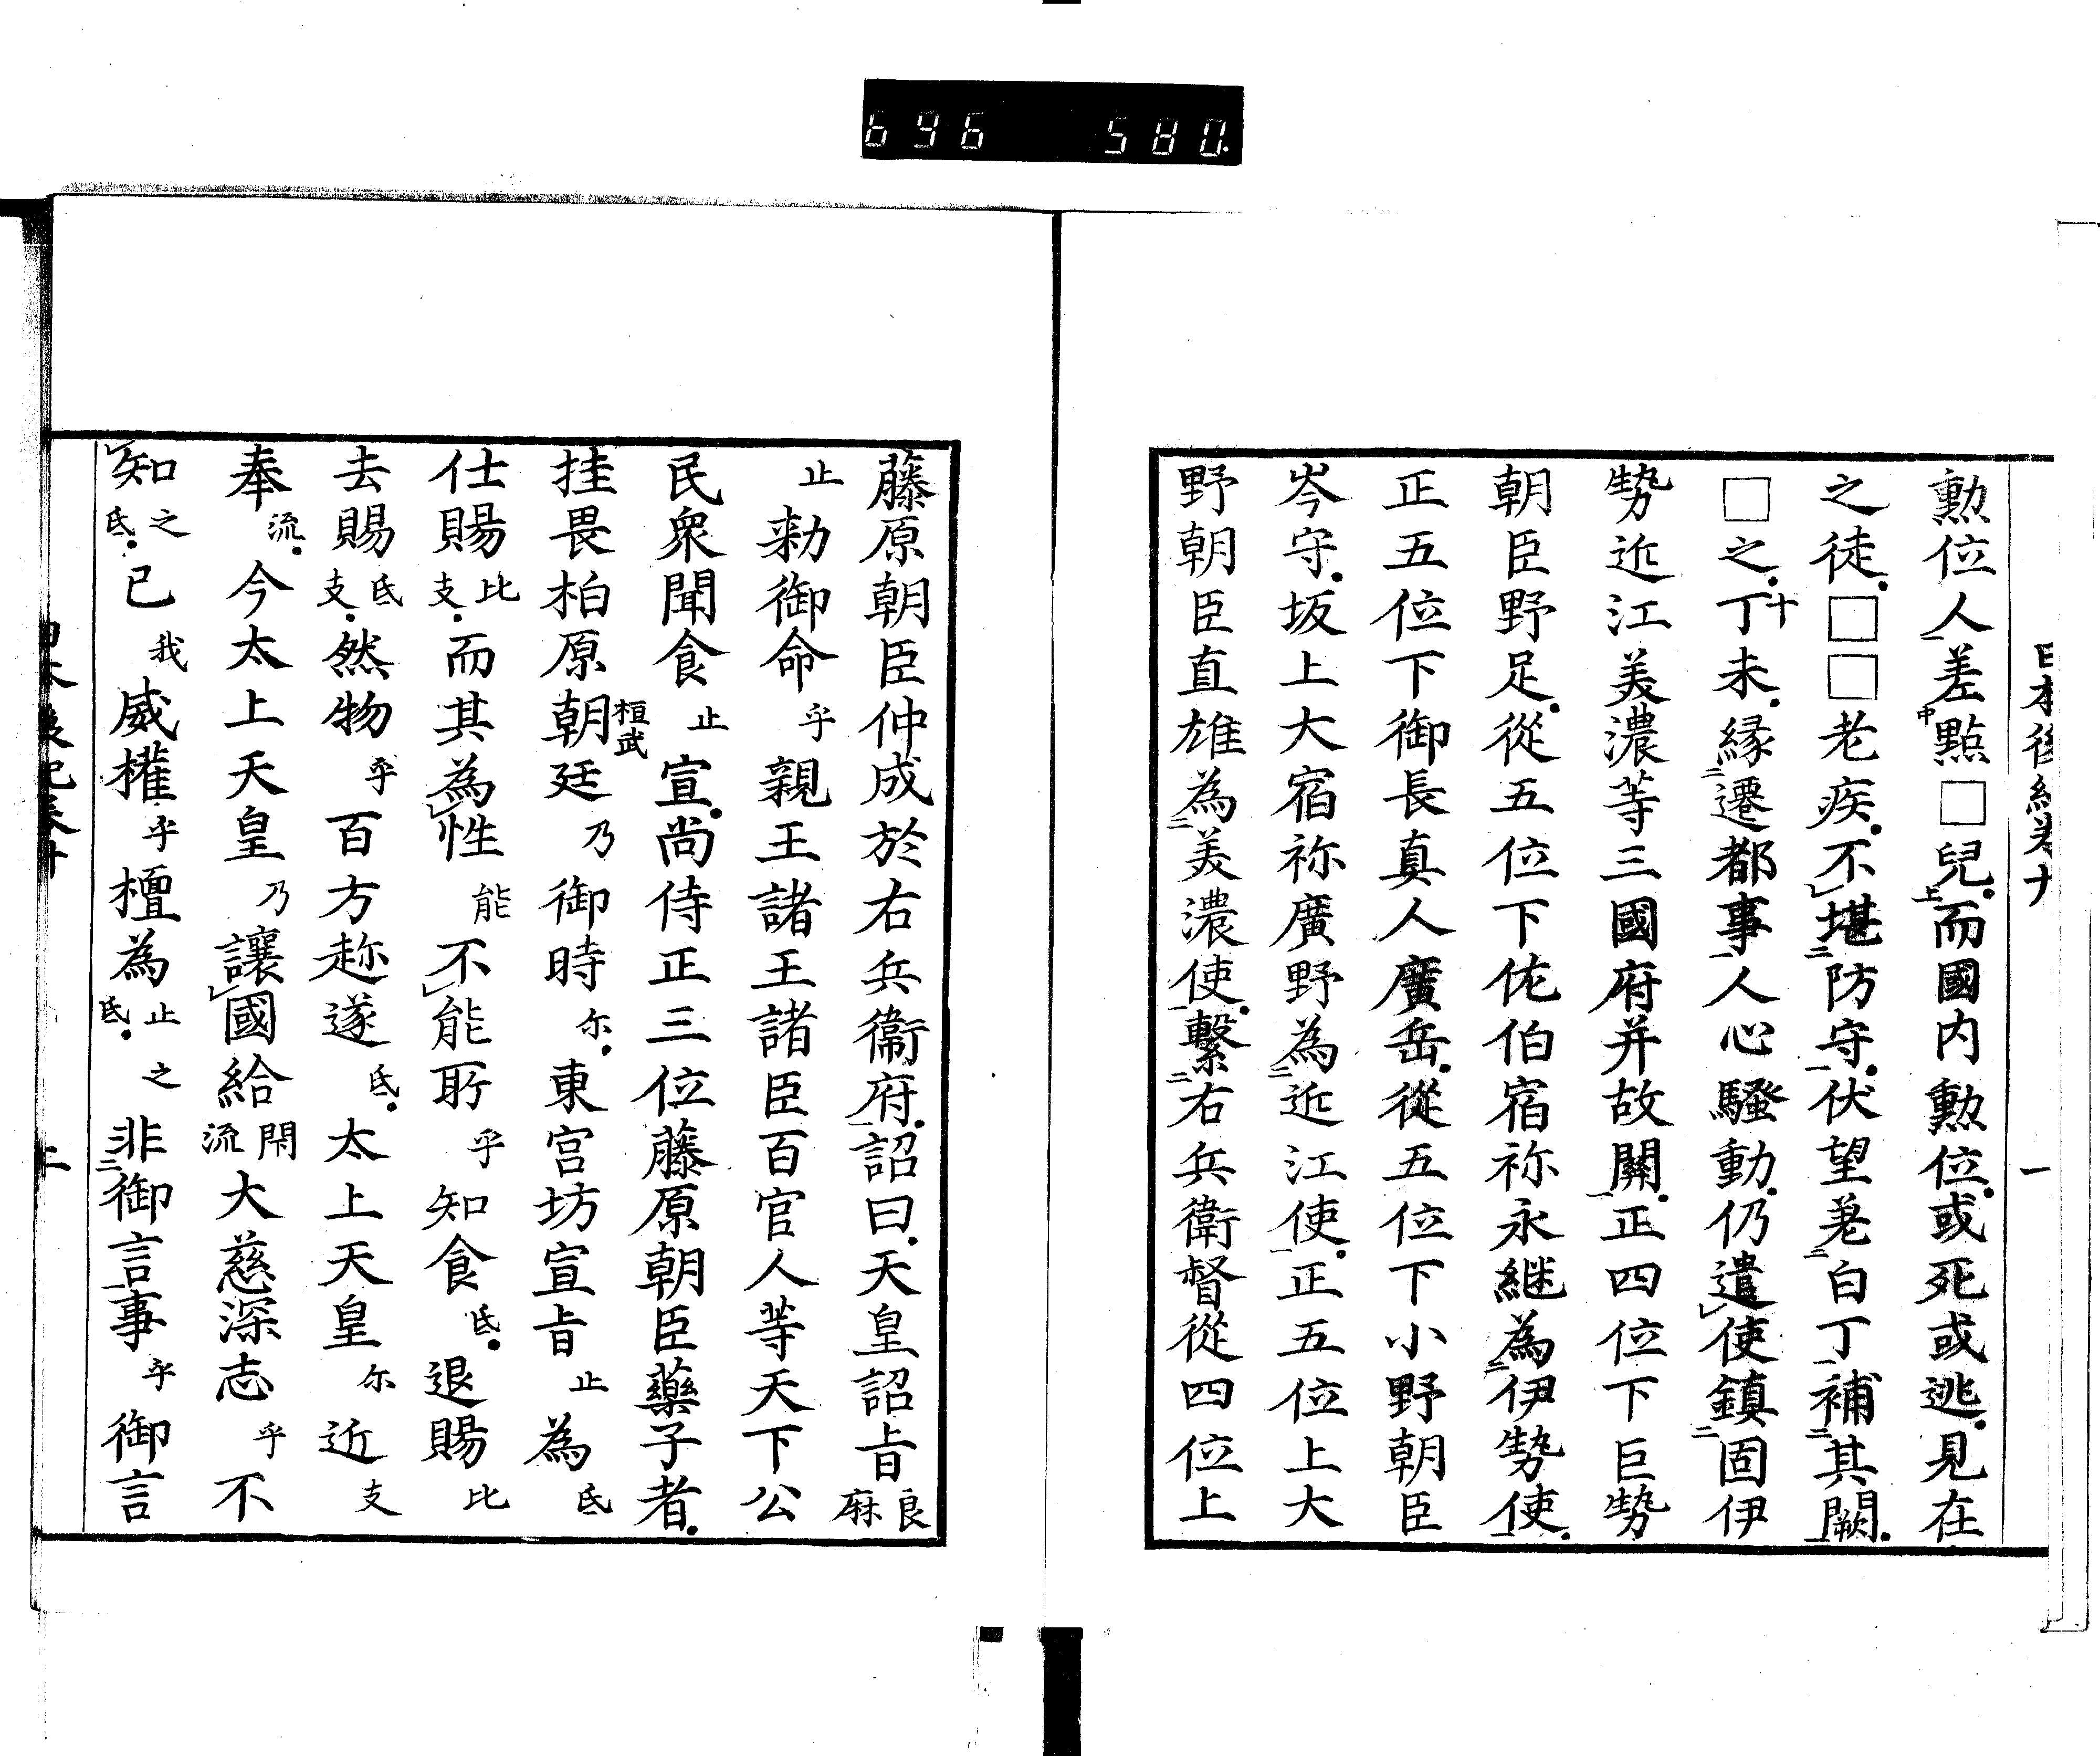 696 580.
日本後紀卷十
一
勲位人差點□兒而國内勲位或死或逃見在
之徒□□老疾不堪防守伏望差白丁補其闕
□之丁未縁遷都事人心騷動仍遣使鎮固伊
勢近江美濃等三國府并故關正四位下巨勢
朝臣野足從五位下佐伯宿祢永継為伊勢使
正五位下御長真人廣岳從五位下小野朝臣
岑守坂上大宿祢廣野為近江使正五位上大
野朝臣直雄為美濃使繋右兵衛督從四位上
藤原朝臣仲成於右兵衛府詔曰天皇詔旨良麻
止勅御命乎親王諸王諸臣百官人等天下公
民衆聞食止宣尚侍正三位藤原朝臣藥子者
挂畏柏原朝廷桓武乃御時尓東宮坊宣旨止為氐
仕賜比支而其為性能不能所乎知食氐退賜比
去賜氐支然物乎百方趁遂氐太上天皇尓近支
奉流今太上天皇乃讓國給閇流大慈深志乎不
知之氐己我威權乎擅為止之氐非御言事乎御言
日本後紀卷十
二